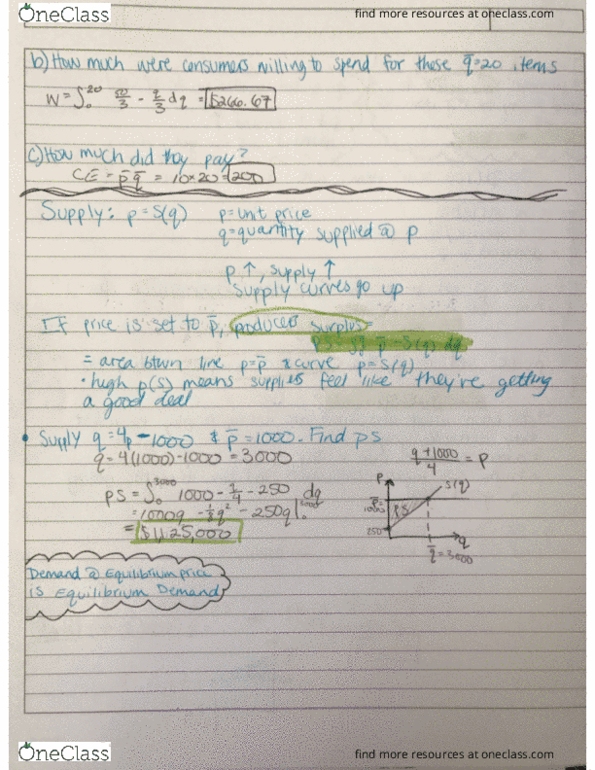 OneClass
find more resources at oneclass.com
b) How much were consumers willing to spend for these q̄=20 items
W = ∫₀²⁰ - q/3 dq = $266.67
c) How much did they pay?
CE = p̄q̄ = 10×20 = 200
Supply: p = S(q) p = unit price
q = quantity supplied @ p
p ↑, supply ↑
supply curves go up
If price is set to p̄, producer surplus =
p̄ - S(q) dq
= area btwn line p=p̄ & curve p=S(q)
• high p(s) means suppliers feel like they're getting
a good deal
• Supply q=4p-1000 & p̄=1000. Find ps
q = 4(1000)-1000 = 3000
q+1000/4 = p
PS = ∫₀³⁰⁰⁰ 1000 - q/4 - 250 dq
= 1000q - 1/8 q² - 250q |₀³⁰⁰⁰
= $1,125,000
P
S(q)
p̄=
1000
PS
250
q
q̄=3,000
Demand @ Equilibrium price
is Equilibrium Demand
OneClass
find more resources at oneclass.com